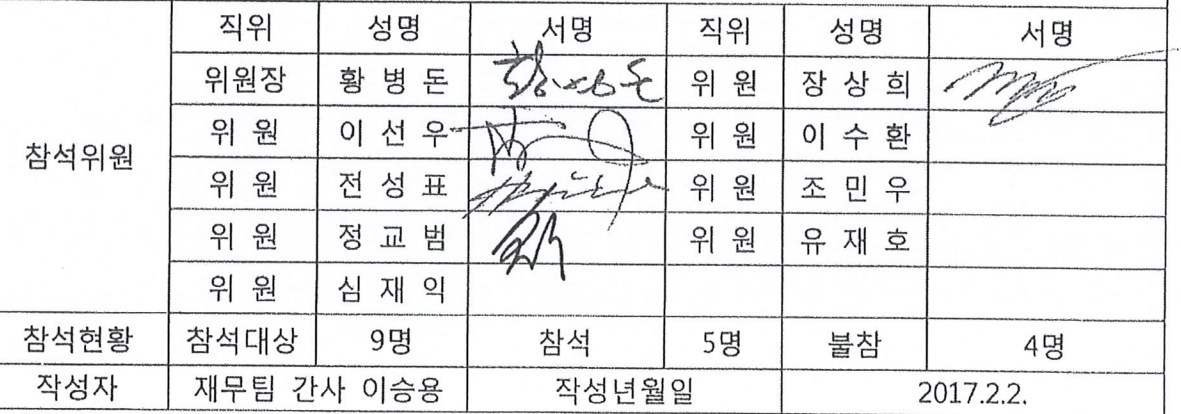 직위 성명 서명 직위 성명 서명
위원장 황 병 돈 황병돈 위 원 장 상 희
위 원 이 선 우 위 원 이 수 환
참석위원
위 원 전 성 표 위 원 조 민 우
위 원 정 교 범 위 원 유 재 호
위 원 심 재 익
참석현황 참석대상 9명 참석 5명 불참 4명
작성자 재무팀 간사 이승용 작성년월일 2017.2.2.